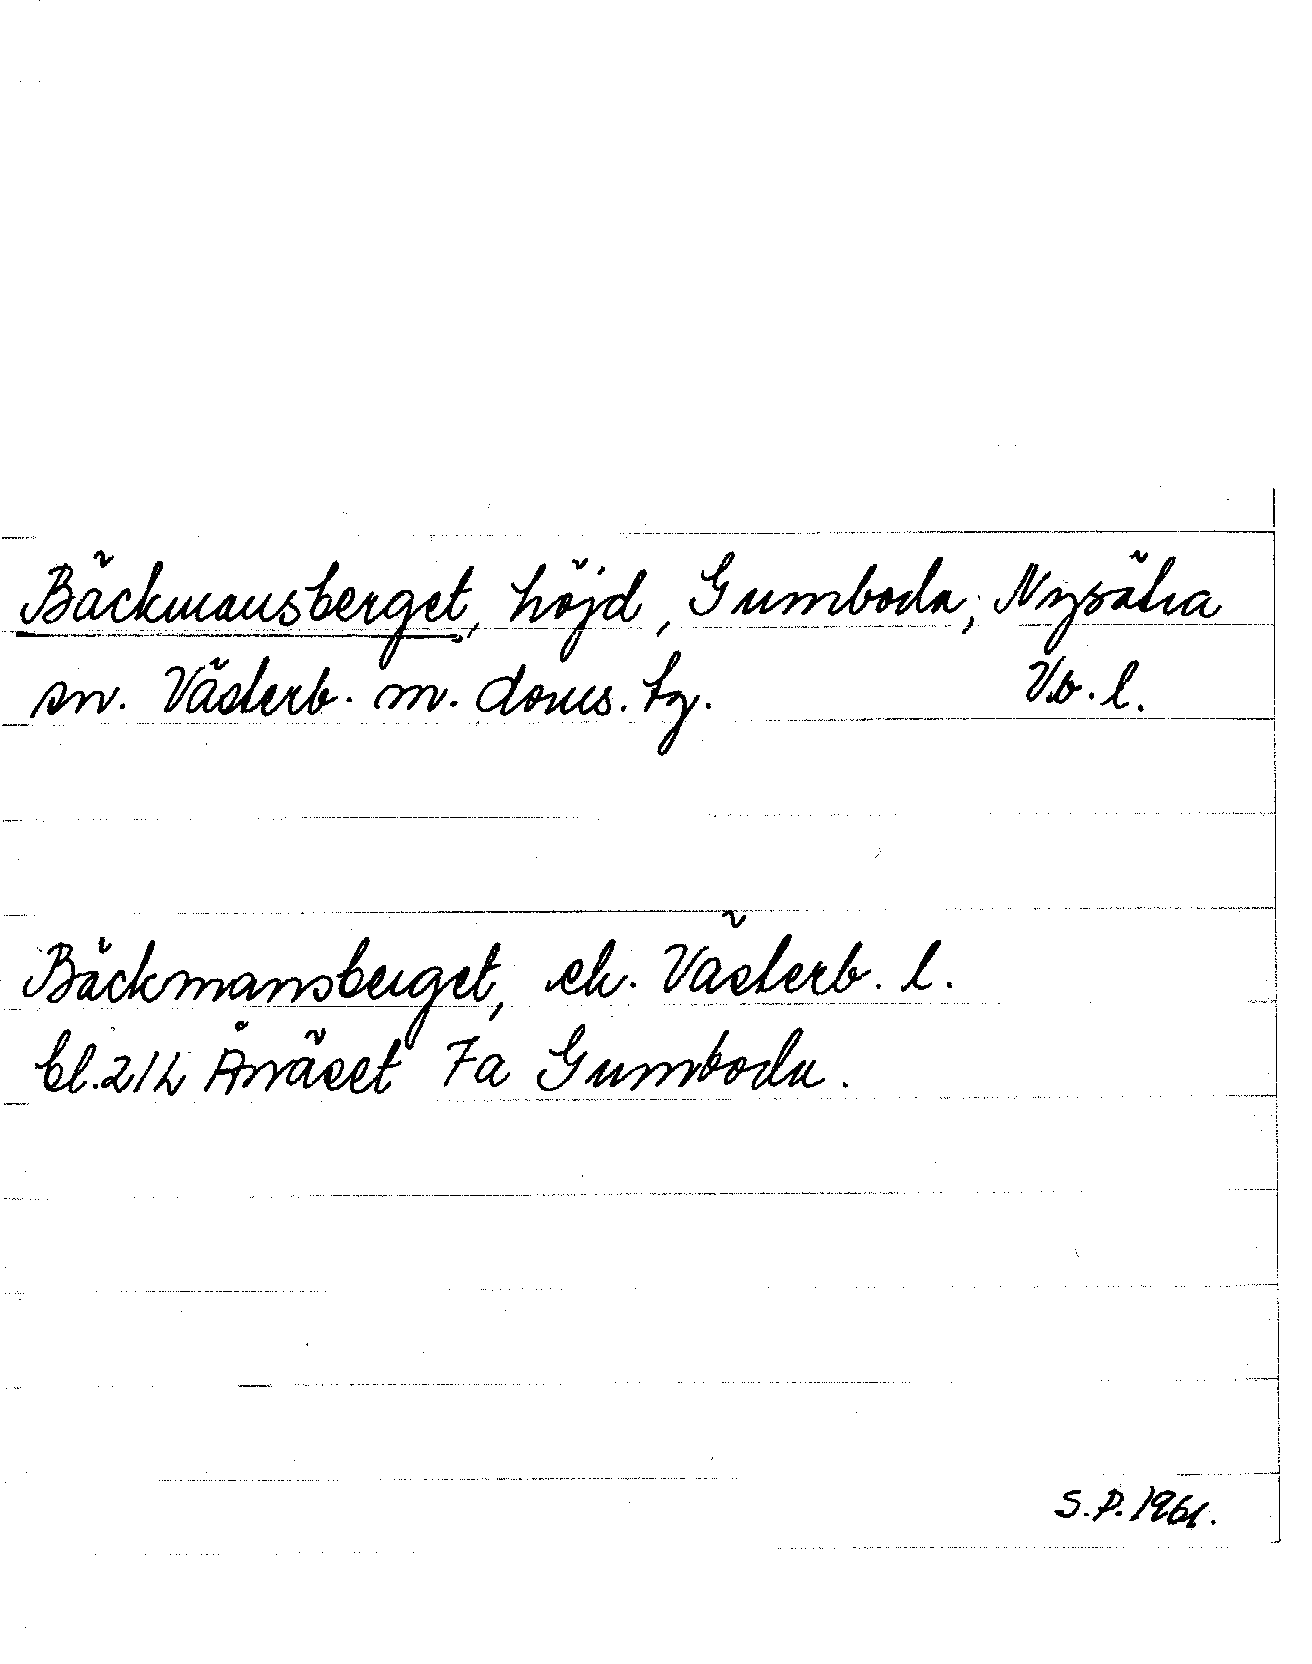 Bäckmansberget, höjd, Gumboda, Nysätra
sn. Västerb. m. doms. tg. Vb. l.
Bäckmansberget, ek. Västerb. l.
bl. 21L Ånäset 7a Gumboda.
S.P. 1961.